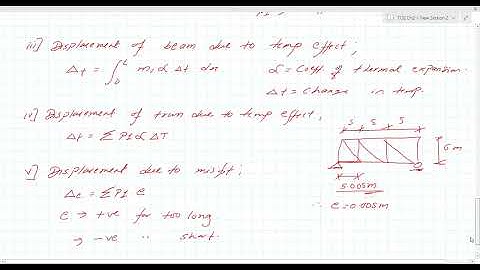 iii] Displacement of beam due to temp effect;
Δt = ∫₀ᴸ m, α Δt dn
α = Coeff. of thermal expansion
Δt = Change in temp.
iv) Displacement of truss due to temp effect,
Δt = Σ P1 α ΔT
5 5 5
6 m
5.005m
∴ e = 0.005m
v) Displacement due to misfit;
Δe = Σ P1 e
e → +ve for too long
→ -ve " short.